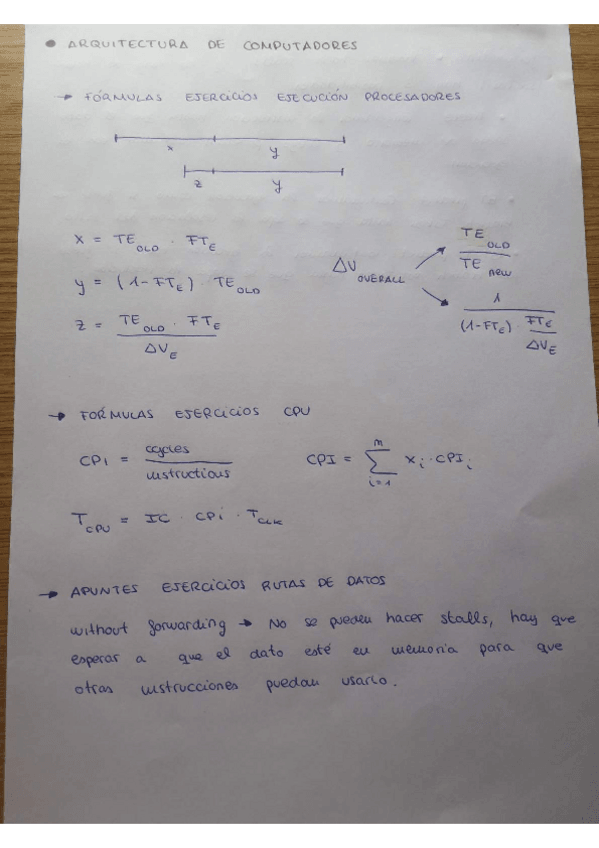 • ARQUITECTURA DE COMPUTADORES
→ FÓRMULAS EJERCICIOS EJECUCIÓN PROCESADORES
x y
z y
x = TE_OLD · FT_E
y = (1 - FT_E) · TE_OLD
z = TE_OLD · FT_E / ΔV_E
ΔV_OVERALL
TE_OLD / TE_new
1 / (1-FT_E) · FT_E / ΔV_E
→ FÓRMULAS EJERCICIOS CPU
CPi = cycles / instructions
CPI = Σ_{i=1}^{n} x_i · CPI_i
T_CPU = IC · CPi · T_CLK
→ APUNTES EJERCICIOS RUTAS DE DATOS
without forwarding → No se pueden hacer stalls, hay que
esperar a que el dato esté en memoria para que
otras instrucciones puedan usarlo.